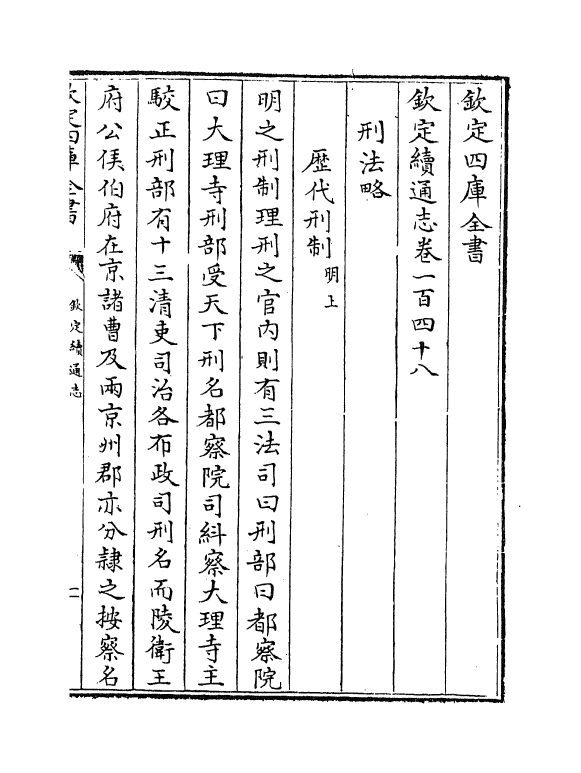 欽定四庫全書
欽定續通志卷一百四十八
刑法略
歴代刑制明上
明之刑制理刑之官内則有三法司曰刑部曰都察院
曰大理寺刑部受天下刑名都察院司糾察大理寺主
駮正刑部有十三清吏司治各布政司刑名而陵衛王
府公侯伯府在京諸曹及兩京州郡亦分隸之按察名
欽定四庫全書
欽定續通志